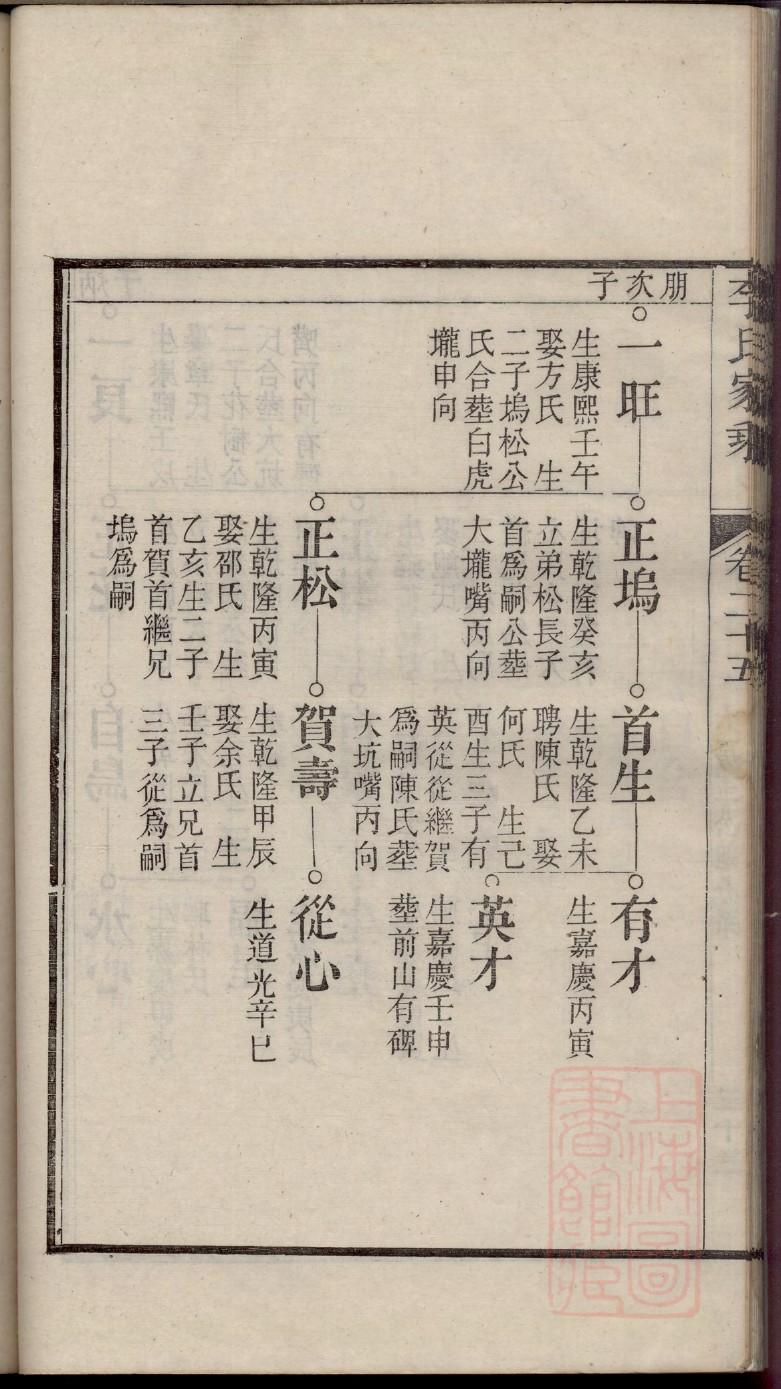 李氏家乘
卷二十五
朋次子
一旺
生康熙壬午
娶方氏 生
二子塢松公
氏合塟白虎
壠申向
正塢
生乾隆癸亥
立弟松長子
首爲嗣公塟
大壠嘴丙向
正松
生乾隆丙寅
娶邵氏 生
乙亥生二子
首賀首繼兄
塢爲嗣
首生
生乾隆乙未
聘陳氏 娶
何氏 生己
酉生三子有
英從從繼賀
爲嗣陳氏塟
大坑嘴丙向
賀壽
生乾隆甲辰
娶余氏 生
壬子立兄首
三子從爲嗣
有才
生嘉慶丙寅
英才
生嘉慶壬申
塟前山有碑
從心
生道光辛巳
上海圖
書館藏